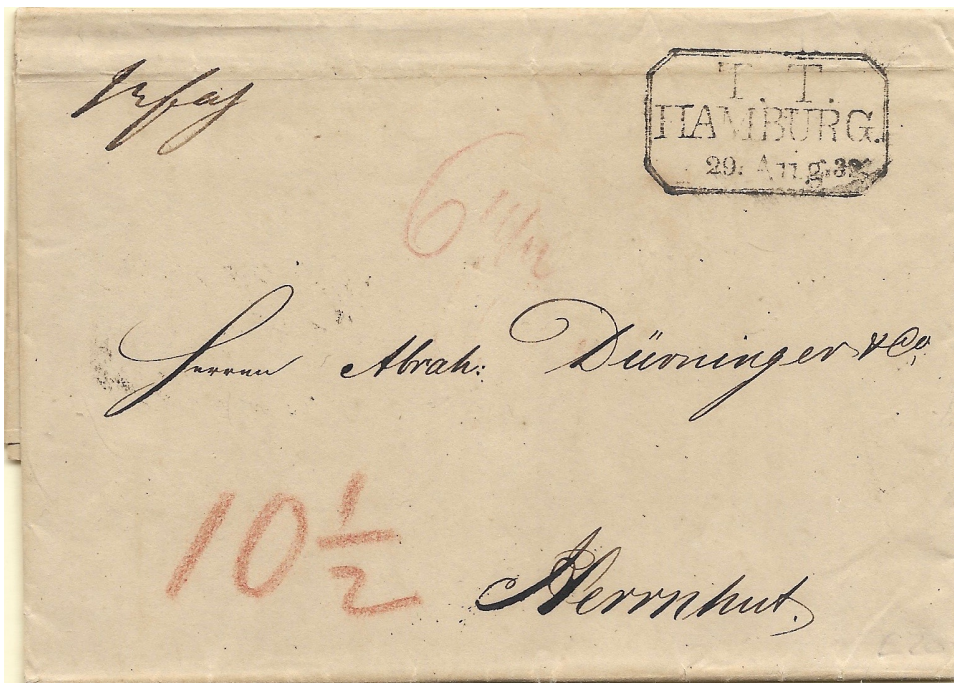 T. T.
HAMBURG.
29. Aug. 39
6
Herren Abrah: Dürninger & Co,
10 1/2
Herrnhut.